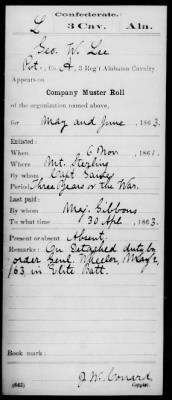 Confederate.
L 3 Cav. Ala.
Geo. W. Lee
Pvt., Co. A, 3 Reg't Alabama Cavalry.
Appears on
Company Muster Roll
of the organization named above,
for May and June, 1863.
Enlisted:
When 6 Nov, 1861.
Where Mt. Sterling
By whom Capt
Period Three Years or the War.
Last paid:
By whom Maj. Gibbons
To what time 30 Apl, 1863.
Present or absent Absent
Remarks: On Detached duty by
order Genl. Wheeler, May
/63 in Elite Batt.
Book mark:
(642) J. W. Conard
Copyist.